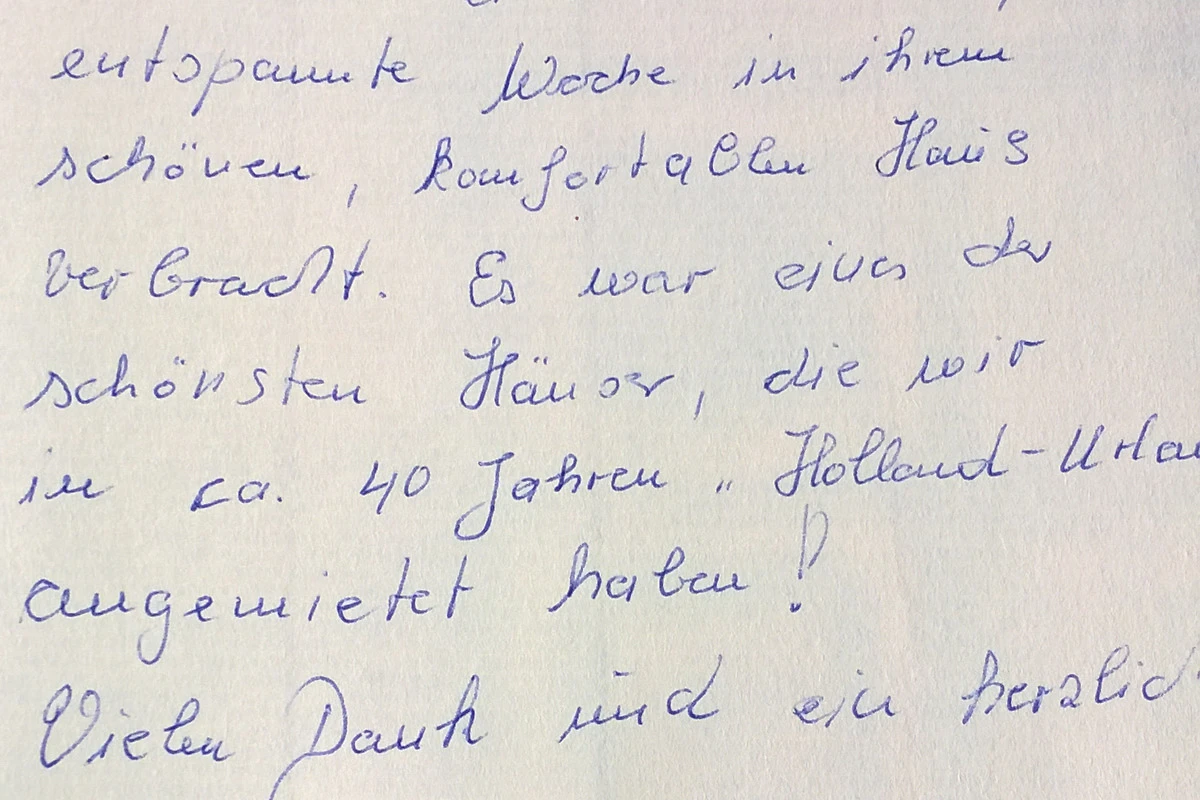 entspannte Woche in ihrem
schönen, komfortablen Haus
verbracht. Es war eines der
schönsten Häuser, die wir
in ca. 40 Jahren „Holland-Urlau
angemietet haben!
Vielen Dank und ein herzlich